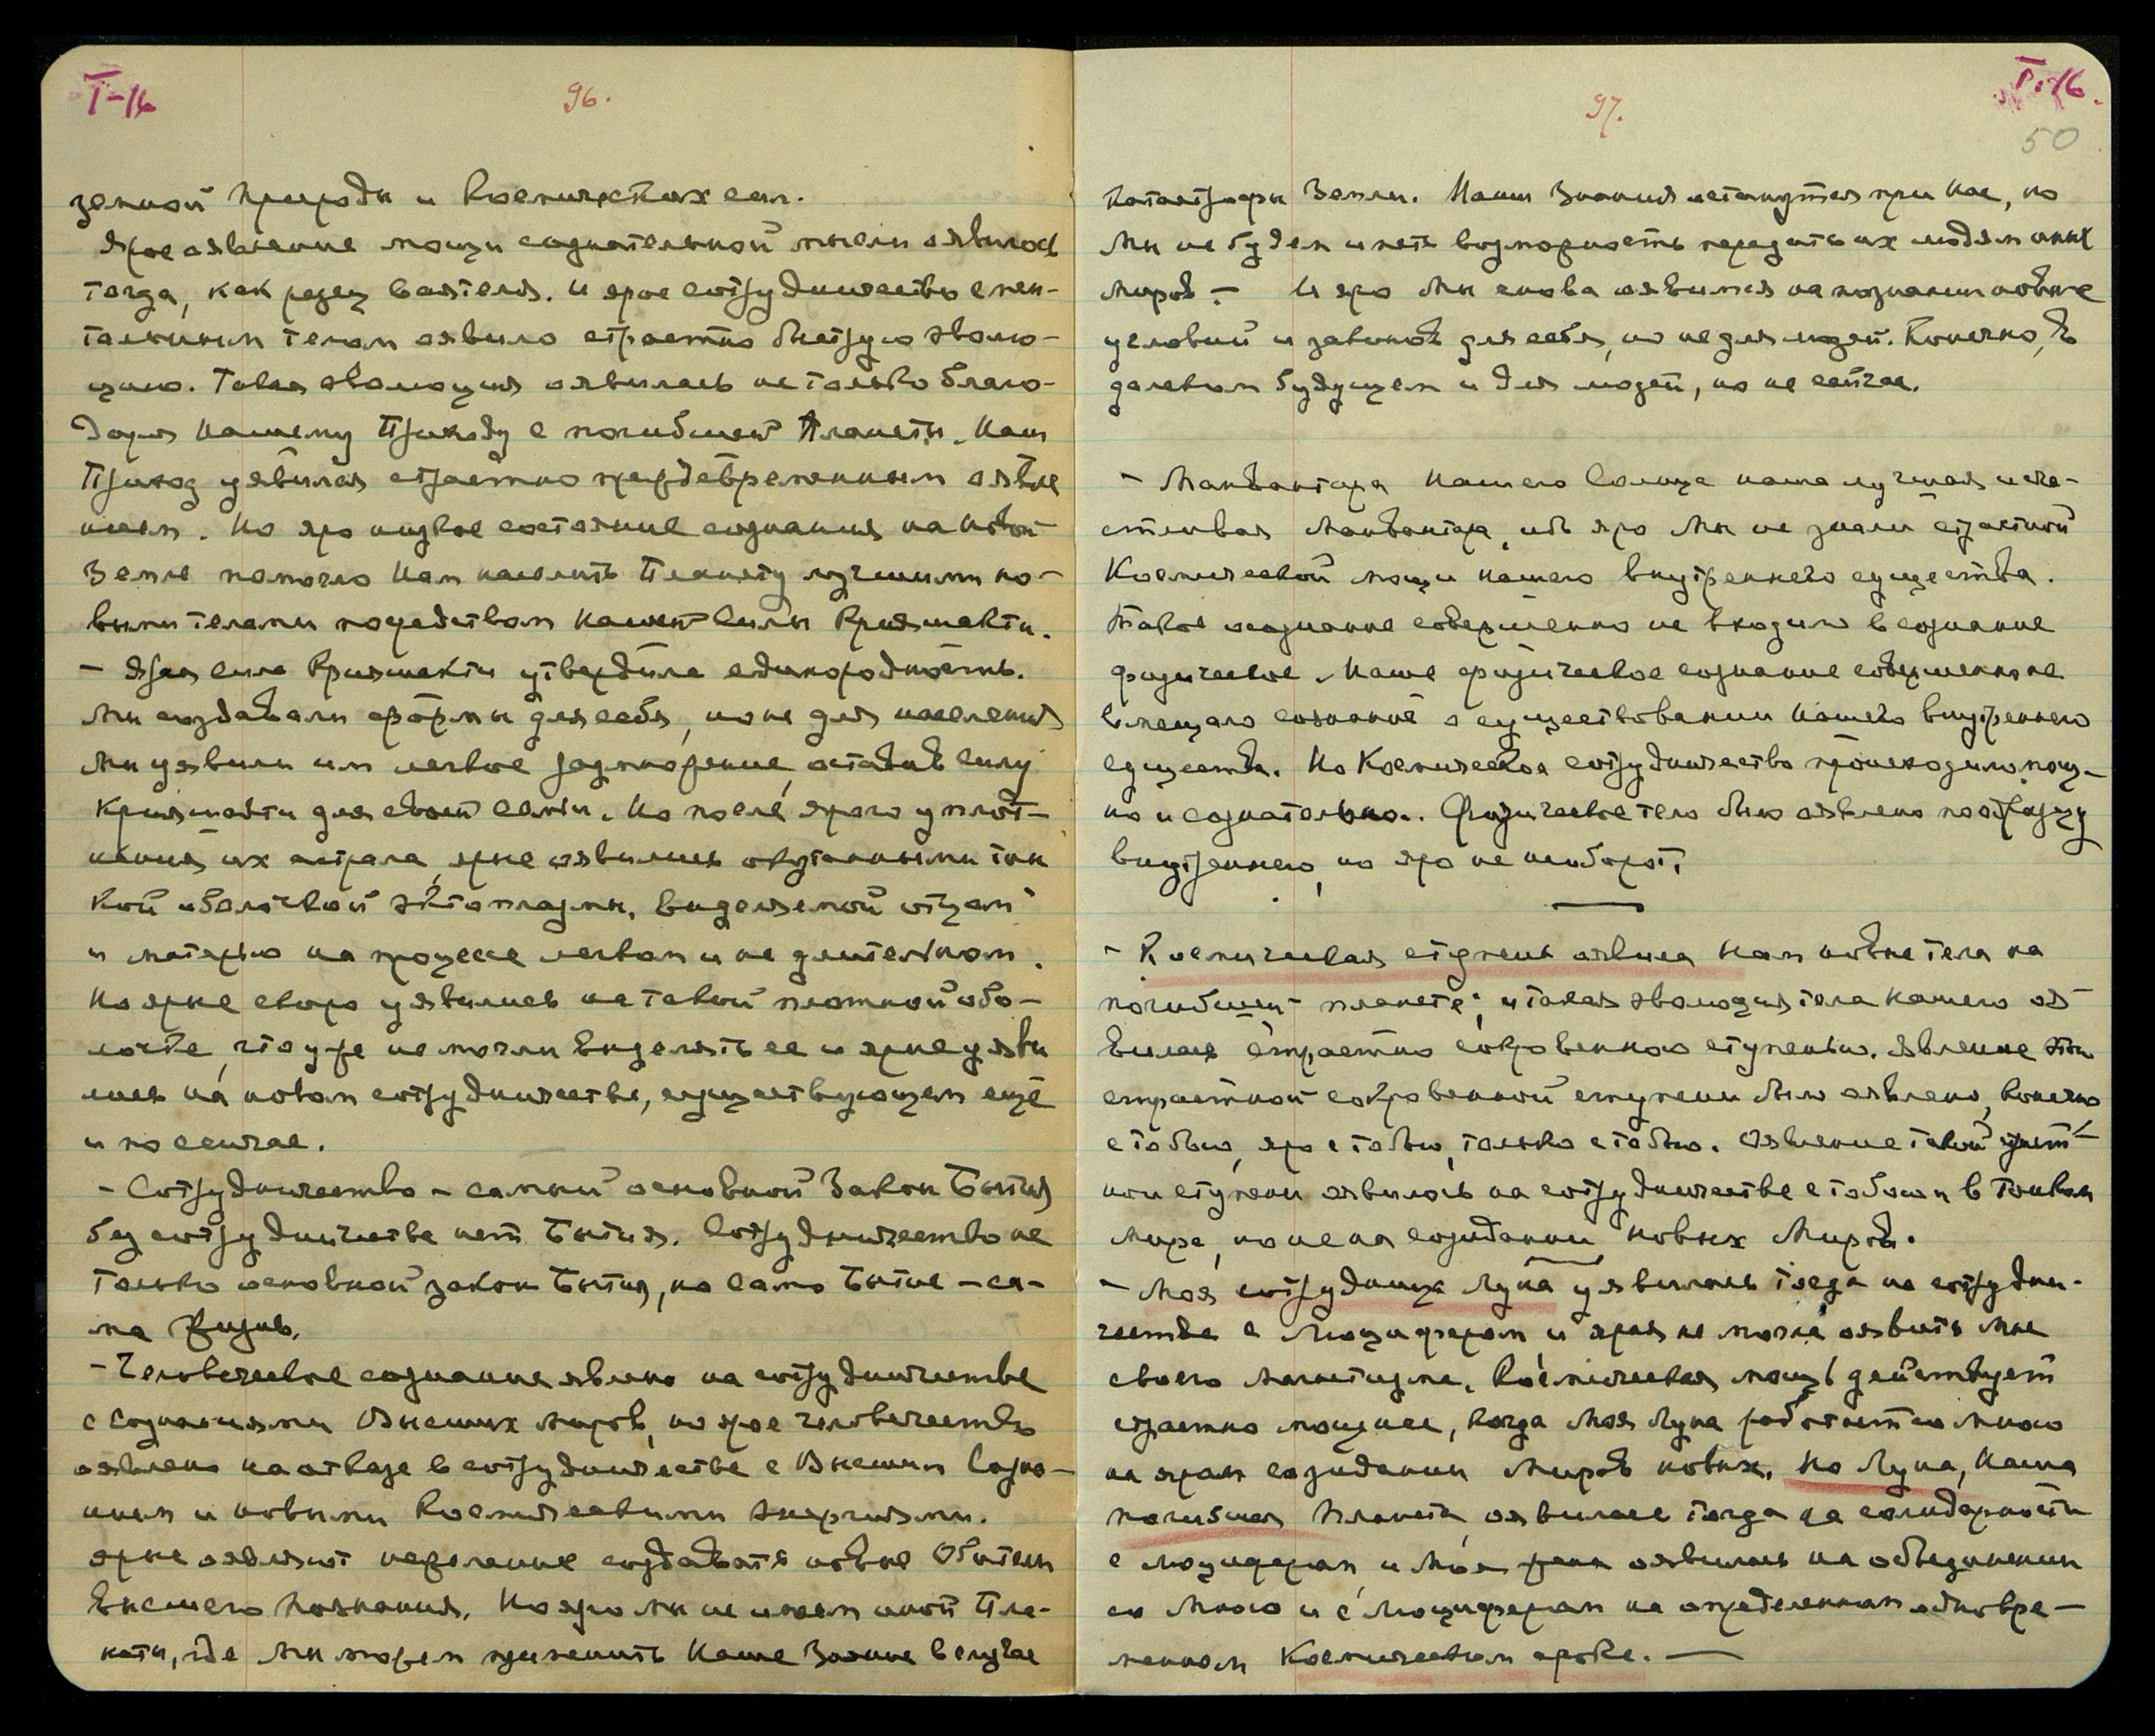 I-16
96.
земной природы и Космических сил.
Ярое оявление мощи сознательной мысли оявилось
тогда, как резец ваятеля. И ярое сотрудничество с мен-
тальным телом оявило страстно быструю эволю-
цию. Такая эволюция оявилась не только благо-
даря Нашему Приходу с погибшей Планеты. Наш
Приход уявился страстно преждевременным оявле
нием. Но яро низкое состояние сознания на новой
Земле помогло Нам населить Планету лучшими но-
выми телами посредством Нашей Силы Крияшакти.
- Ярая сила Крияшакти утвердила единородность.
Мы создавали формы для себя, но не для населения
Мы уявили им легкое размножение, оставив силу
Крияшакти для своей Семьи. Но после ярого уплот-
нения их астрала, ярые оявились окутанными тон
кой оболочкой эктоплазмы, выделяемой отцом
и матерью на процессе легком и не длительном.
Но ярые скоро уявились на такой плотной обо-
лочке, что уже не могли выделять ее и ярые уяви
лись на новом сотрудничестве, существующем ещё
и по сейчас.
- Сотрудничество - самый основной Закон Бытия
без сотрудничества нет Бытия. Сотрудничество не
только основной закон Бытия, но само Бытие - са-
ма Жизнь.
- Человеческое сознание явлено на сотрудничестве
с Сознаниями Высших миров, но ярое человечество
оявлено на отказе в сотрудничестве с Высшим Созна-
нием и новыми Космическими энергиями.
Ярые оявляют нежелание создавать новые Обители
Высшего Познания. Но яро мы не имеем иной Пла-
неты, где Мы можем применить Наше Знание в случае
I-16.
97.
50
катастрофы Земли. Наши Знания останутся при Нас, но
Мы не будем иметь возможность передать их людям иных
Миров. - И яро Мы снова оявимся на познании новых
условий и законов для себя, но не для людей. Конечно, в
далеком будущем и для людей, но не сейчас.
- Манвантара Нашего Солнца наша лучшая и сча-
стливая Манвантара, ибо яро Мы не знали страстной
Космической мощи нашего внутреннего существа.
Такое осознание совершенно не входило в сознание
физическое. Наше физическое сознание совершенно не
вмещало сознание о существовании Нашего внутреннего
существа. Но Космическое сотрудничество происходило мощ-
но и сознательно. Физическое тело было оявлено по образу
внутреннего, но яро не наоборот.
- Космическая ступень оявила Нам новые тела на
погибшей планете; и такая эволюция тела нашего оя-
вилась страстно сокровенною ступенью. Явление этой
страстной сокровенной ступени было оявлено, конечно
с тобою, яро с тобою, только с тобою. Оявление такой страст-
ной ступени оявилось на сотрудничестве с тобою и в Тонком
мире, но не на созидании новых Миров.
- Моя сотрудница Луна уявилась тогда на сотрудни-
честве с Люцифером, и ярая не могла оявить Мне
своего магнетизма. Космическая мощь действует
страстно мощнее, когда Моя Луна работает со Мною
на яром созидании Миров новых. Но Луна, Наша
погибшая Планета, оявилась тогда на солидарности
с Люцифером и Моя жена оявилась на объединении
со Мною и с Люцифером на определенном одновре-
менном Космическом сроке. -